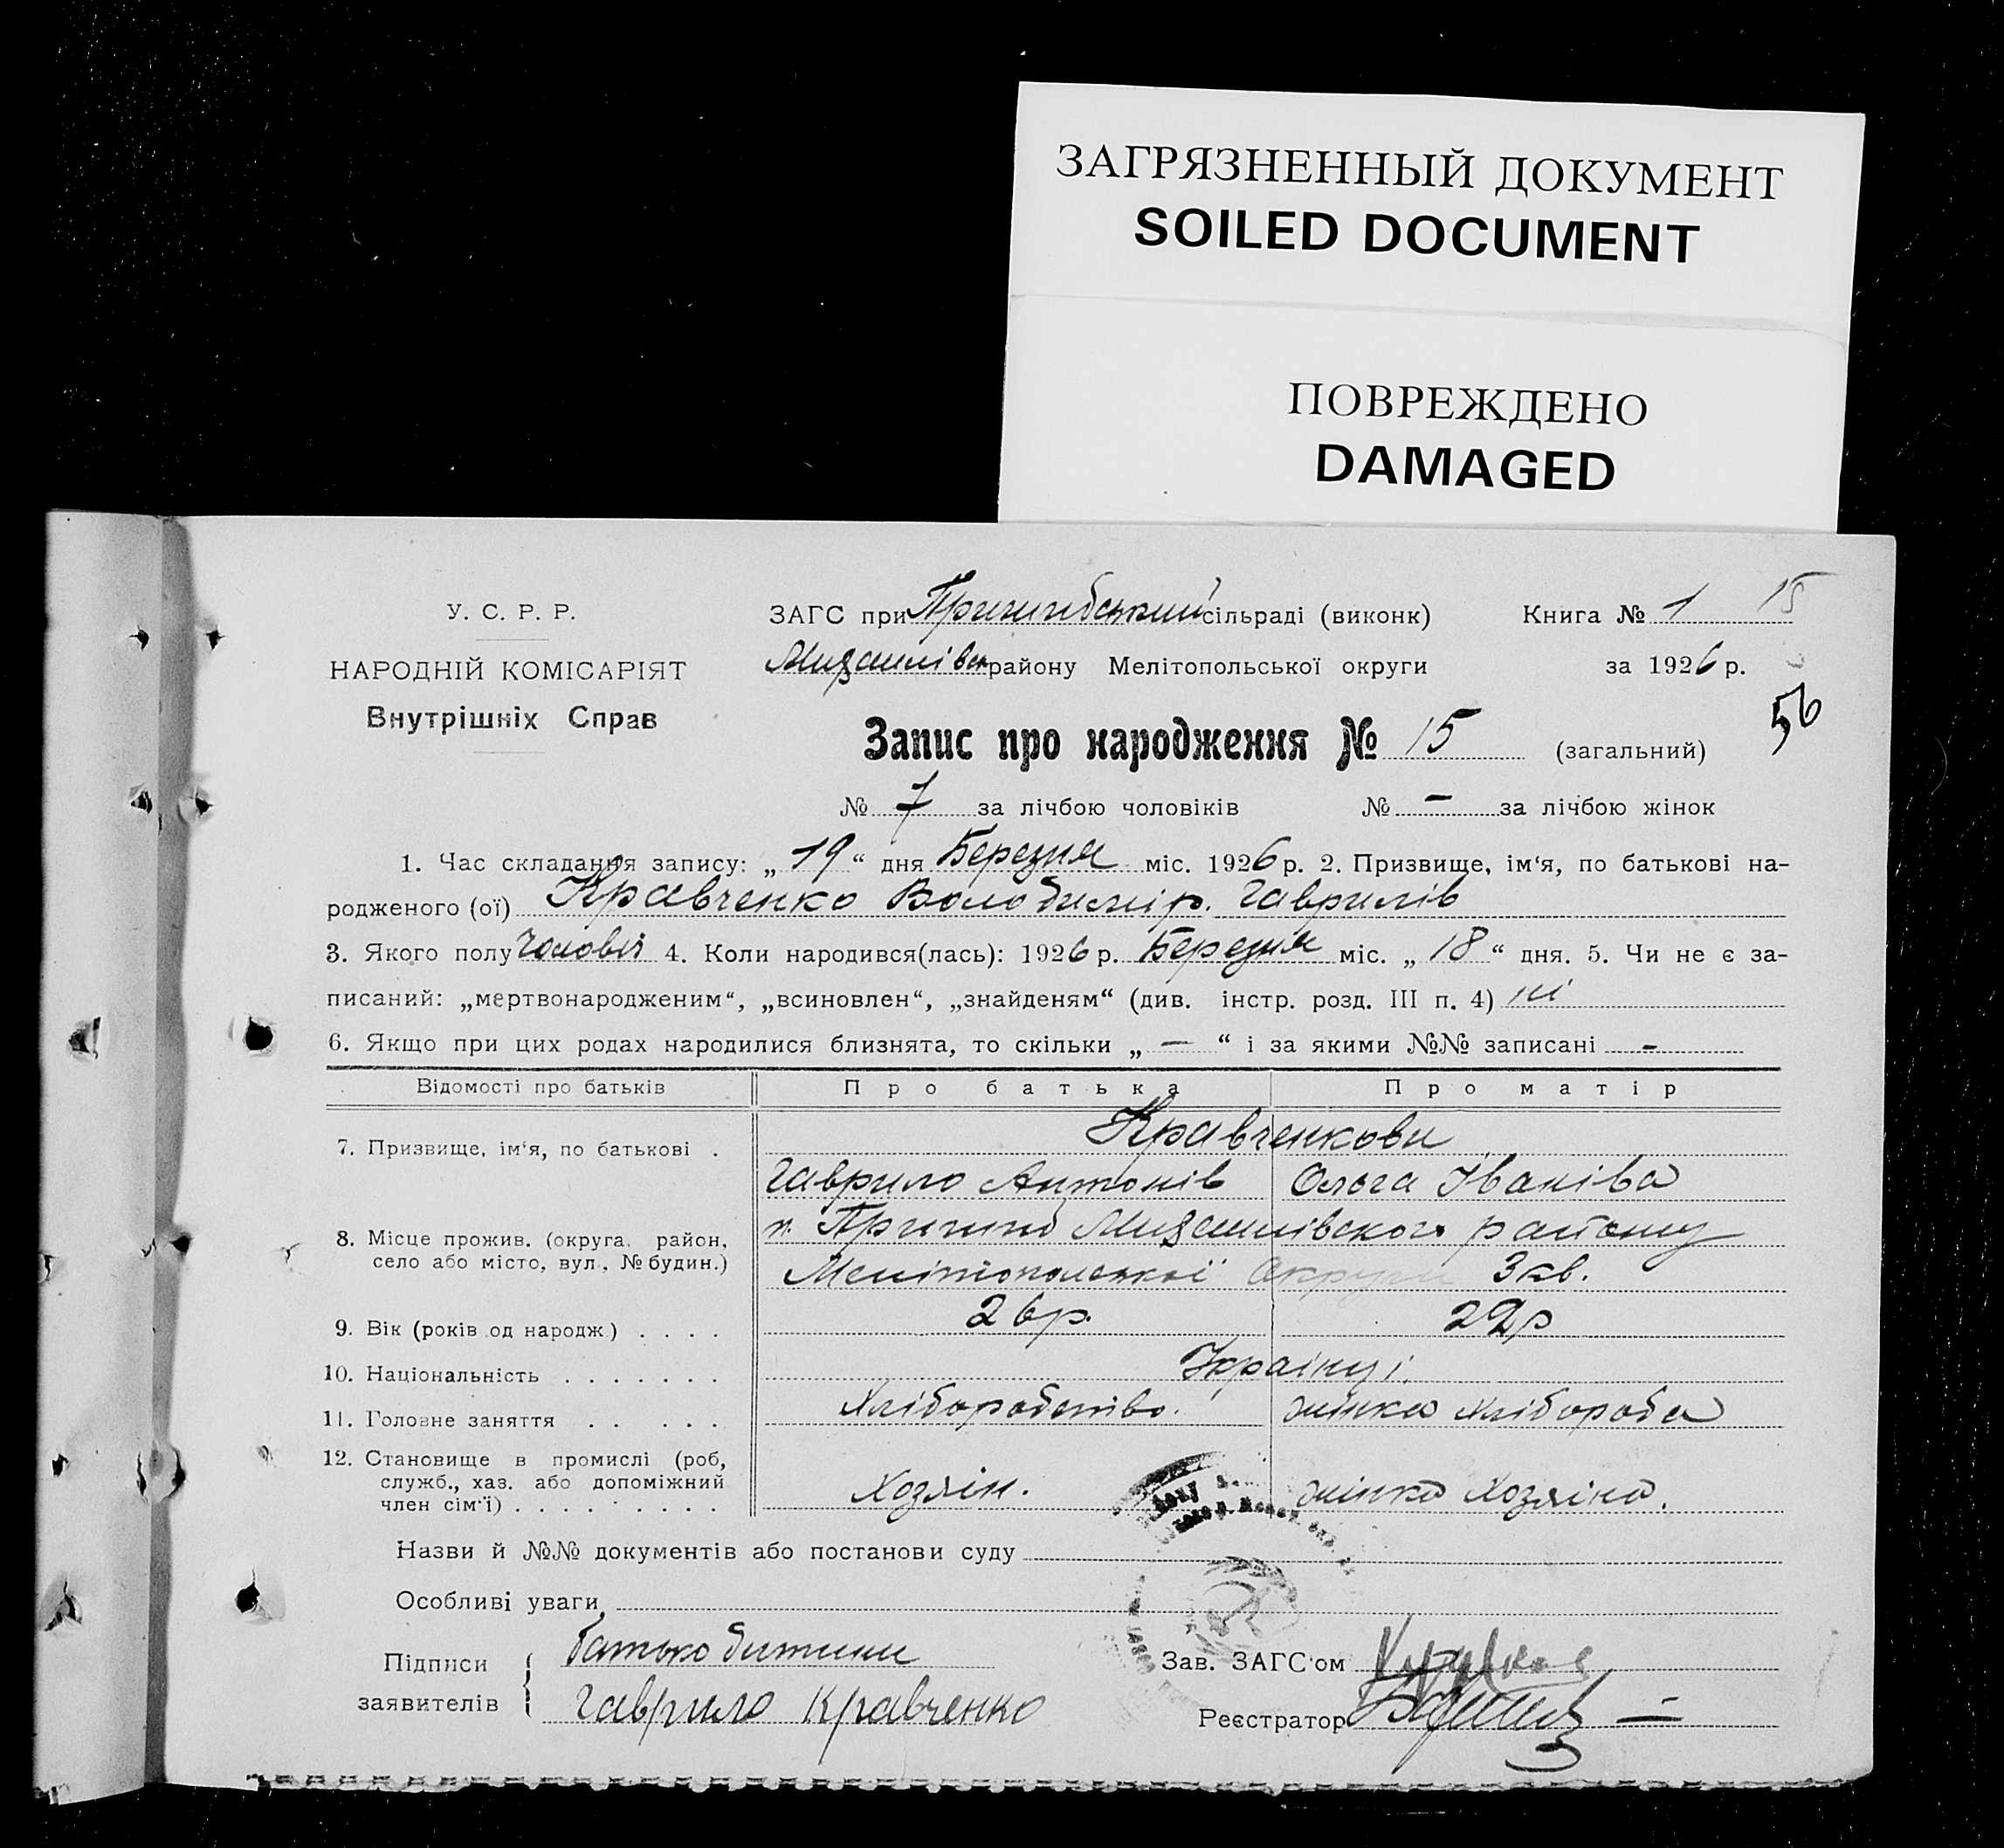 ЗАГРЯЗНЕННЫЙ ДОКУМЕНТ
SOILED DOCUMENT
ПОВРЕЖДЕНО
DAMAGED
У. С. Р. Р.
НАРОДНІЙ КОМІСАРІЯТ
Внутрішніх Справ
ЗАГС при Пришибський сільраді (виконк)
району Мелітопольської округи
Книга № 1 15
за 1926 р.
56
Запис про народження № 15 (загальний)
№ 7 за лічбою чоловіків № — за лічбою жінок
1. Час складання запису: „ 19 “ дня Березня міс. 1926 р. 2. Призвище, ім‘я, по батькові на-
родженого (ої) Кравченко Володимір. Гаврилів
3. Якого полу 4. Коли народився(лась): 1926 р. Березня міс. „ 18 “ дня. 5. Чи не є за-
писаний: „мертвонародженим“, „всиновлен“, „знайденям“ (див. інстр. розд. III п. 4) ні
6. Якщо при цих родах народилися близнята, то скільки „ — “ і за якими №№ записані -
Відомості про батьків Про батька Про матір
7. Призвище, ім‘я, по батькові . Кравченкови
Гаврило Антонів Ольга Іваніва
8. Місце прожив. (округа, район,
село або місто, вул., № будин.)
с. Пришиб району
Мелітопольскої Округи 3 кв.
9. Вік (років од народж) . . . . 26 р. 22 р
10. Національність . . . . . . . Українці.
11. Головне заняття . . . . . Хліборобство. жінка хлібороба
12. Становище в промислі (роб,
служб., хаз. або допоміжний
член сім‘ї) . . . . . . . . . Хозяін. жінка Хозяіна.
Назви й №№ документів або постанови суду
Особливі уваги
Підписи
заявителів
батько дитини
Гаврило Кравченко
Зав. ЗАГС‘ом
Реєстратор